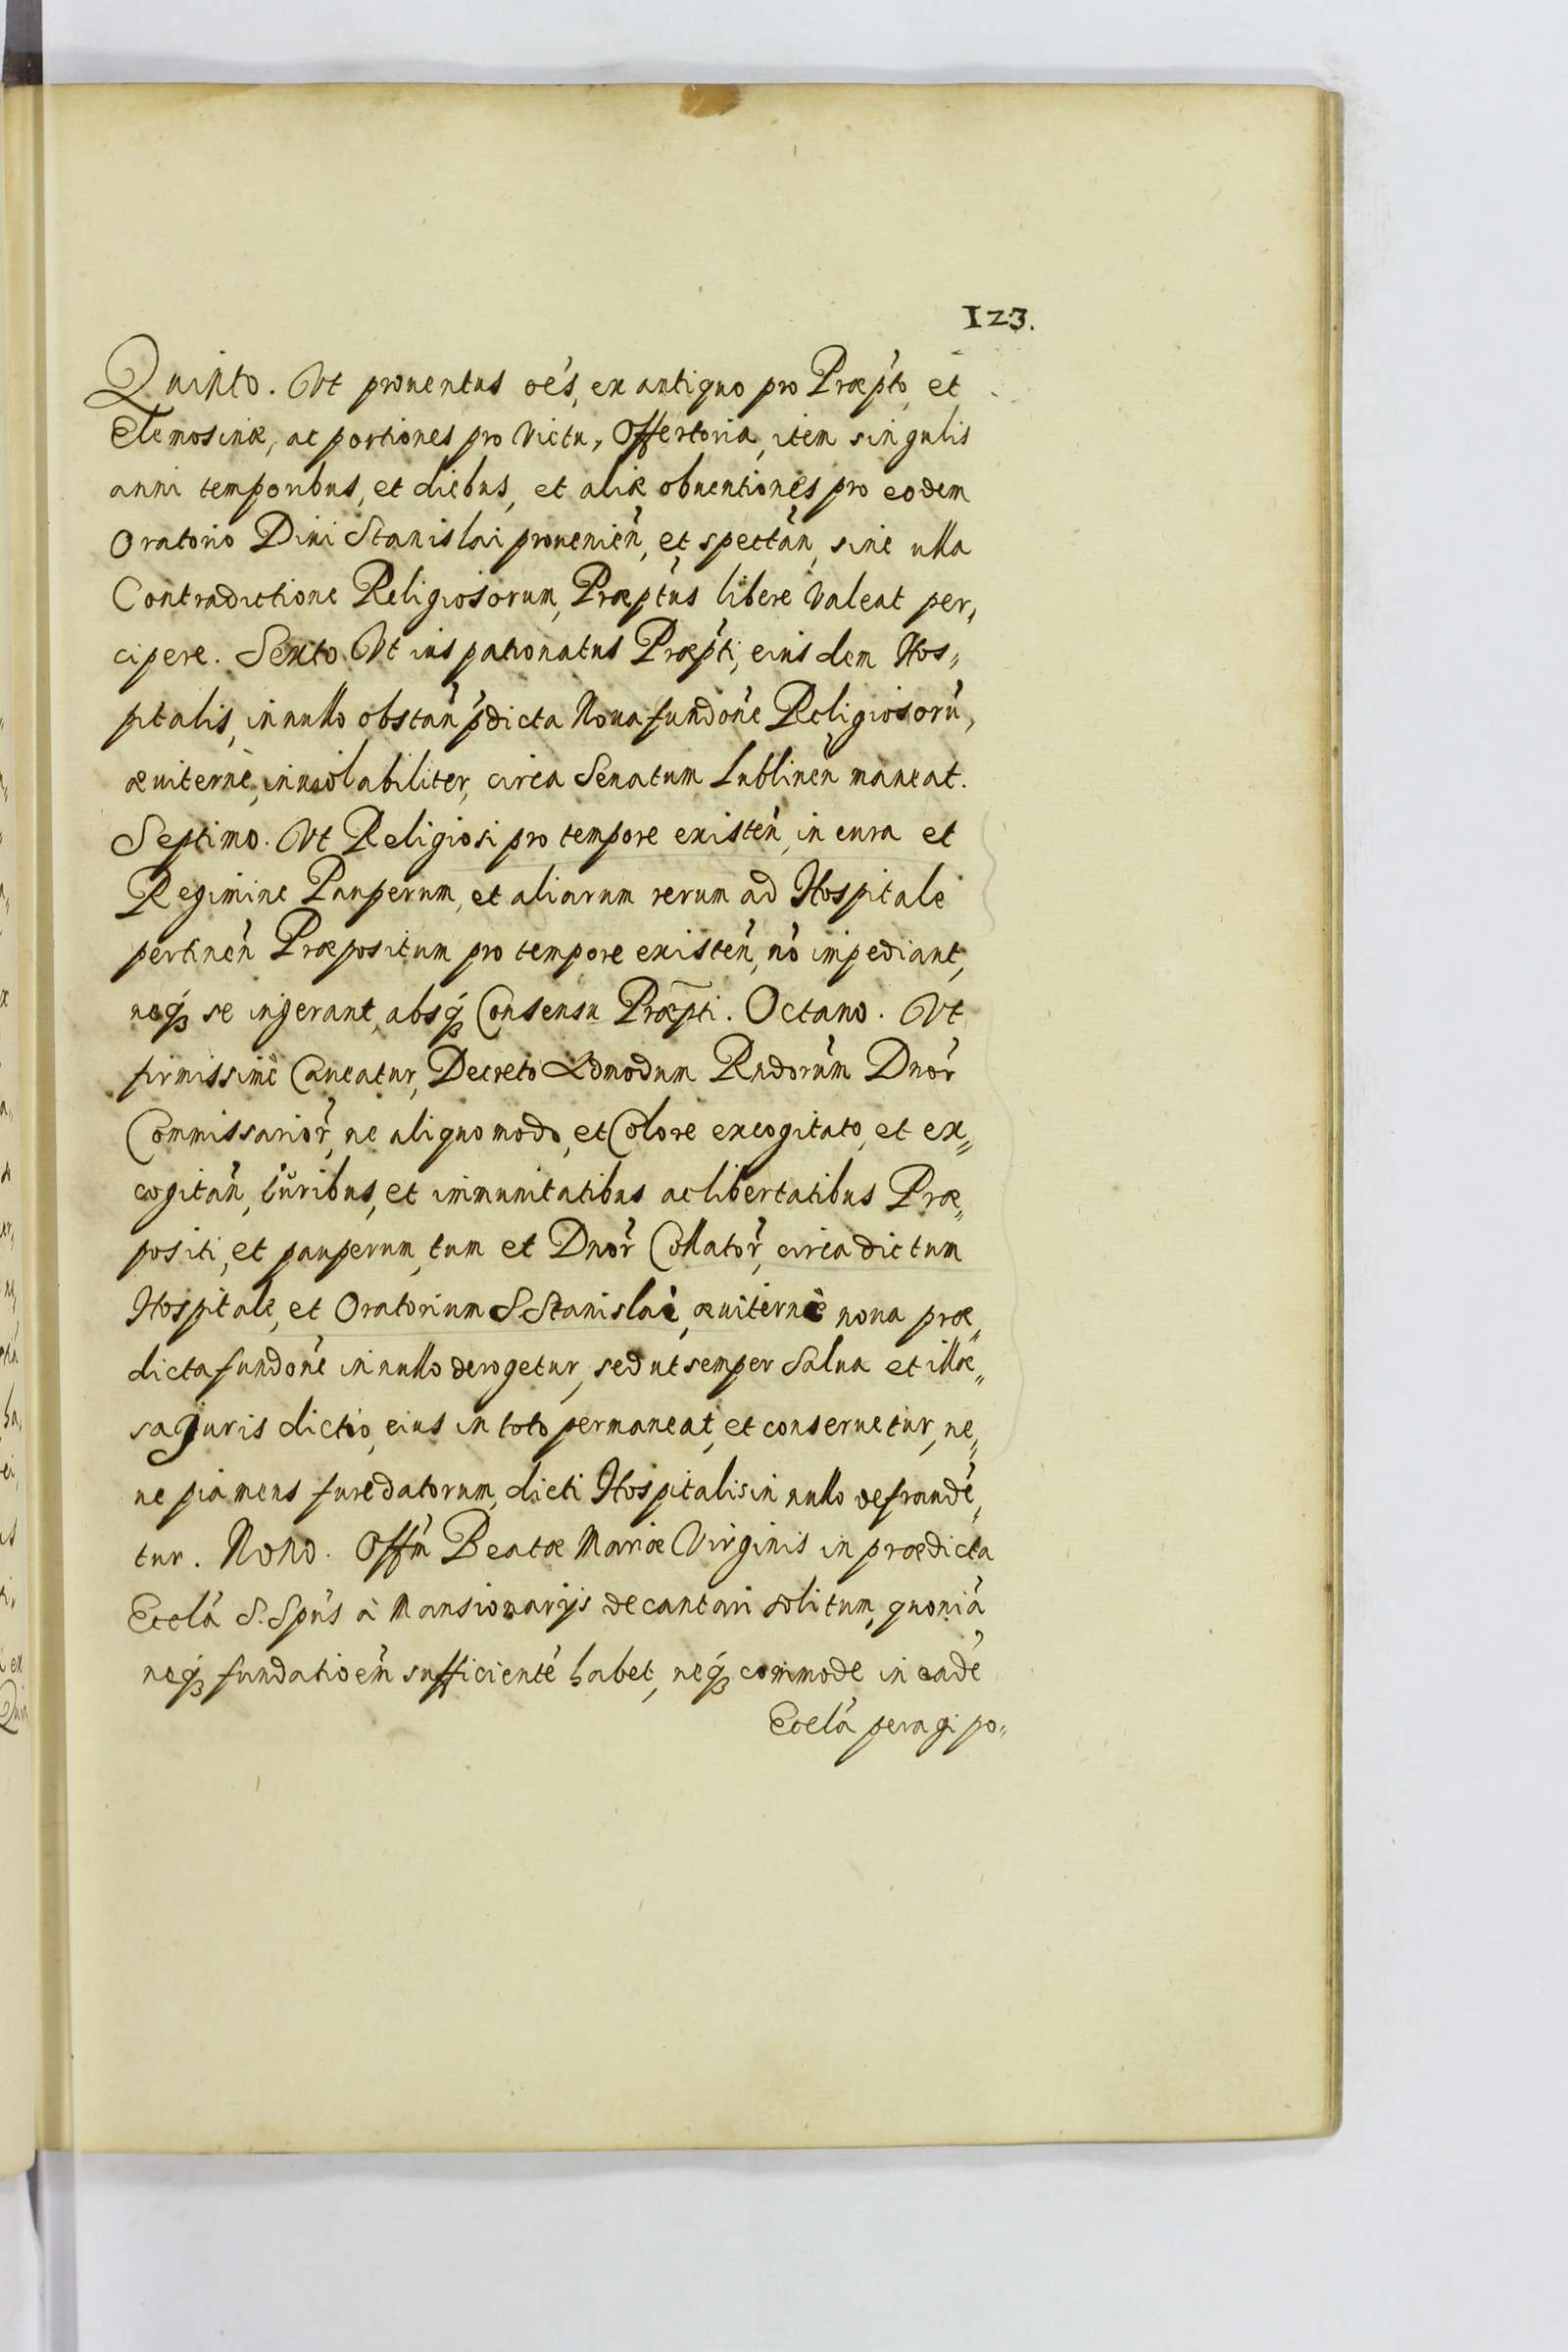 123.
Quinto. Vt prouentus oe's, ex antiquo pro Præp'to, et
Elemosinæ, ac portiones pro victu, Offertoria, item singulis
anni temporibus, et diebus, et aliæ obuentiones pro eodem
Oratorio Diui Stanislai prouenien', et spectan', sine ulla
Contradictione Religiosorum, Præptus libere valeat per,,
cipere. Sexto. Vt ius patronatus Præp'ti, eius dem Hos,,
pitalis, in nullo obstan' p'dicta Noua fundo'ne Religiosoru',
æuiternè, inuiolabiliter, circa Senatum Lublinen' maneat.
Septimo. Vt Religiosi pro tempore existen', in cura et
Regimine Pauperum, et aliarum rerum ad Hospitale
pertinen' Præpositum pro tempore existen', no' impediant,
neq́ȝ se ingerant, absq́ȝ Consensu Præp̄ti. Octauo. Vt
firmissimè Caueatur, Decreto Admodum Rndoru'm Dnor'
Commissarior', ne aliquo modo, et Colore excogitato, et ex,,
cogitan', Iŭribus, et immunitatibus ac libertatibus Præ,,
positi, et pauperum, tum et Dnor' Collator', circa dictum
Hospitale, et Oratorium S. Stanislai, æuiternè noua præ,,
dicta fundo'ne in nullo derogetur, sed ut semper Salua et illæ,,
sa Juris dictio, eius in toto permaneat, et conseruetur, ne,,
ne pia mens furedatorum, dicti Hospitalis in nullo defraude',,
tur. Nono. Offm' Beatæ Mariæ Virginis in prædicta
Eccla' S. Spu's à Mansionarijs decantari solitum, quonia'
neq́ȝ fundatioem' sufficiente' habet, neq́ȝ commode in eade'
Eccla' peragi po,,